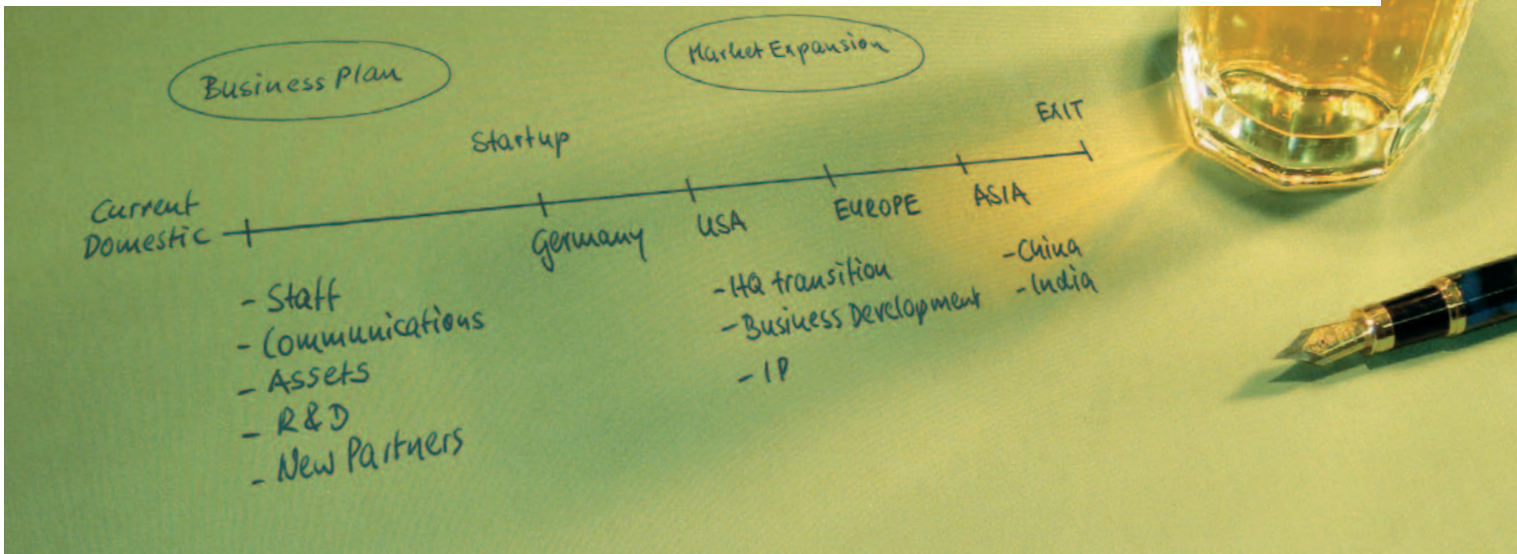 Business Plan
Market Expansion
Startup
EXIT
Current
Domestic
Germany
USA
EUROPE
ASIA
- Staff
- Communications
- Assets
- R&D
- New Partners
- HQ transition
- Business Development
- IP
- China
- India